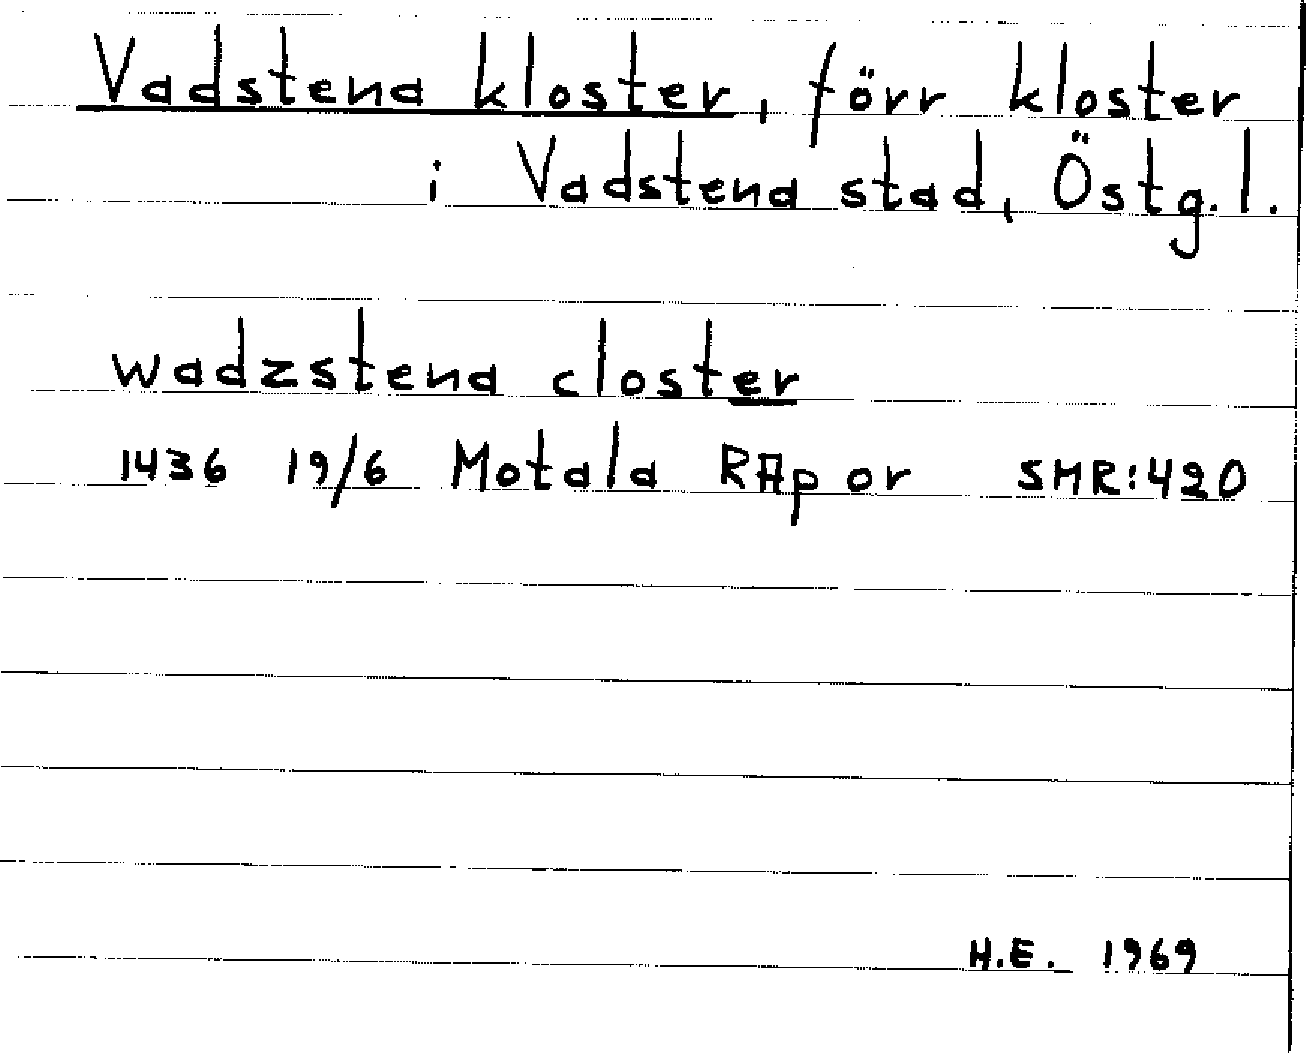 Vadstena kloster, förr kloster
i Vadstena stad, Östg.l.
wadzstena closter
1436 19/6 Motala RAp or SMR:420
H.E. 1969